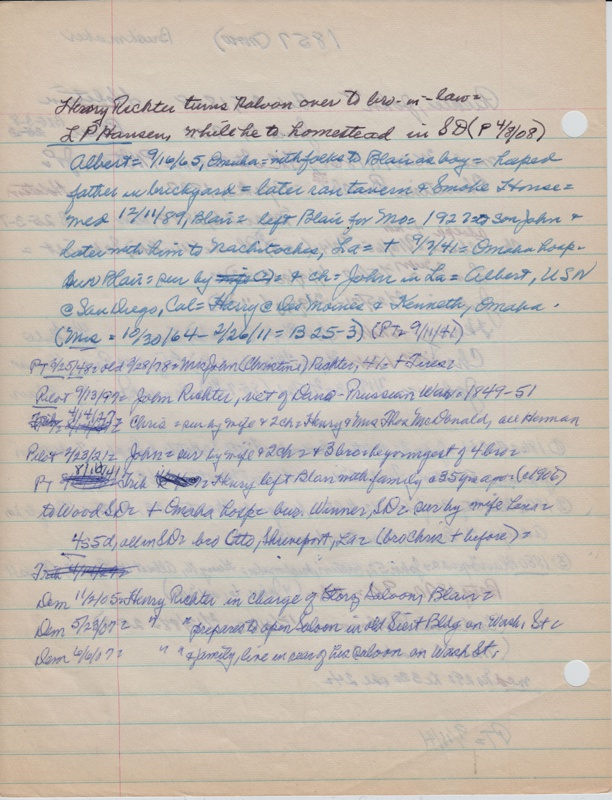 Henry Richter turns saloon over to bro-in-law =
L P Hansen, while he to homestead in SD (P 4/8/08)
Albert = 9/16/65, Omaha = with folks to Blair as boy = helped
father in brickyard = later ran tavern & Smoke House =
med 12/11/89, Blair = left Blair for Mo = 1922 to son John &
later with him to Nachitoches, La = + 9/2/41 = Omaha hosp =
bur Blair = sur by & ch = John in La = Albert, USN
@ San Diego, Cal = Harry @ Des Moines & Kenneth, Omaha.
(Mrs = 10/30/64 - 2/26/11 = B 25-3) (PT = 9/11/41)
PT 9/25/48 = old 9/28/78 = Mrs John (Christina) Richter, 41 = +
Pilot 9/13/97 = John Richter, vet of Dano-Prussian War = 1849-51
4/14/27 = Chris = sur by wife & 2 ch = Henry & Mrs Thos McDonald, all Herman
Pilot 2/23/21 = John = sur by wife & 2 ch = & 3 bro = he youngest of 4 bro =
PT 8/10/41 = Henry left Blair with family @ 35 yrs ago = (c1906)
to Wood SD = + Omaha hosp = bur. Winner, SD = sur by wife =
4s 5d, all in SD = bro Otto, Shreveport, La = (bro Chris + before) =
Dem 11/2/05 = Henry Richter in charge of Storz Saloon, Blair =
Dem 5/23/07 = " " prepares to open saloon in old Bldg on Wash, St =
Dem 6/6/07 = " " & family, live in rear of his saloon on Wash St,